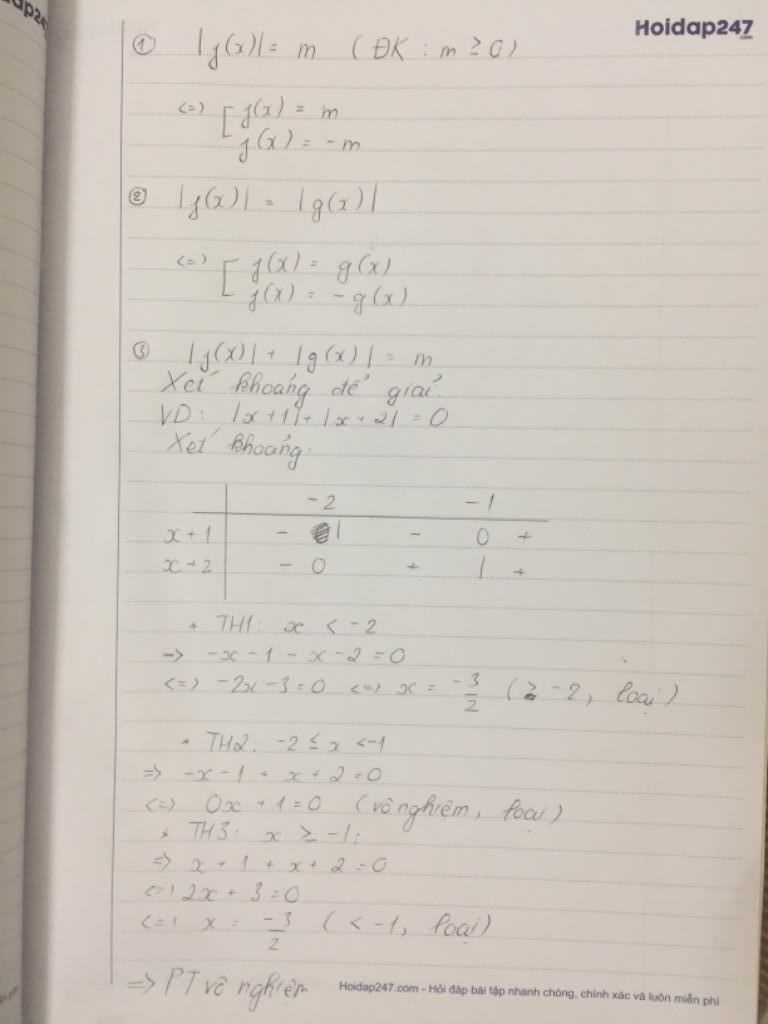 Hoidap247
① |f(x)| = m (ĐK : m ≥ 0)
<=> [ f(x) = m
f(x) = - m
② |f(x)| = |g(x)|
<=> [ f(x) = g(x)
f(x) = - g(x)
③ |f(x)| + |g(x)| = m
Xét khoảng để giải.
VD: |x + 1| + |x + 2| = 0
Xét khoảng:
-2 -1
x + 1 - | - 0 +
x + 2 - 0 + | +
* TH1: x < -2
=> -x - 1 - x - 2 = 0
<=> -2x - 3 = 0 <=> x = -3/2 (≥ -2, loại)
* TH2: -2 ≤ x < -1
=> -x - 1 + x + 2 = 0
<=> 0x + 1 = 0 (vô nghiệm, loại)
* TH3: x ≥ -1:
=> x + 1 + x + 2 = 0
<=> 2x + 3 = 0
<=> x = -3/2 (< -1, loại)
=> PT vô nghiệm
Hoidap247.com - Hỏi đáp bài tập nhanh chóng, chính xác và luôn miễn phí